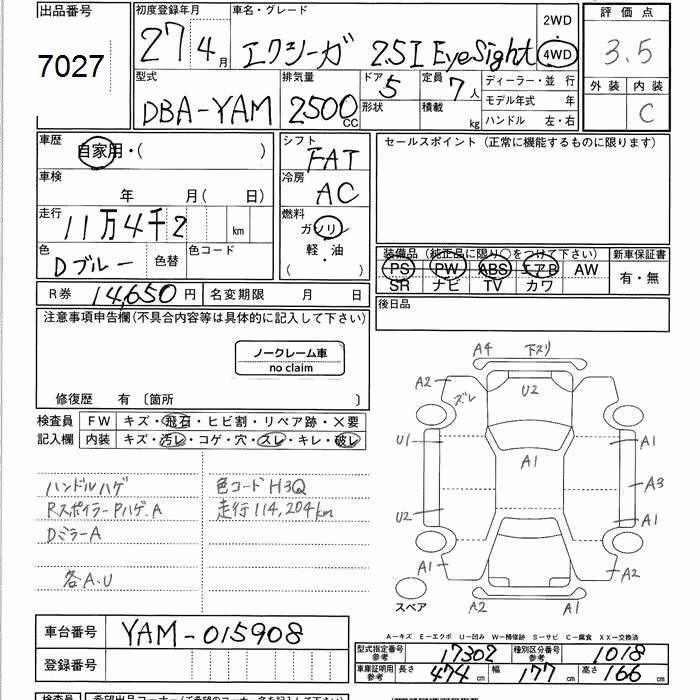 出品番号
7027
初度登録年月 車名・グレード
27 4月 エクシーガ 2.5I EyeSight
2WD
・
4WD
評価点
3.5
外装 内装
C
型式 排気量 ドア 定員
DBA-YAM 2500CC 5 7人
形状 積載 kg
ディーラー・並行
モデル年式 年
ハンドル 左・右
車歴
自家用・( )
車検
年 月( 日)
走行
11万4千2 km
色 Dブルー 色替 色コード
シフト
FAT
冷房
AC
燃料
ガソリン
軽・油
( )
セールスポイント (正常に機能するものに限ります)
装備品 (純正品に限り○をつけて下さい) 新車保証書
PS PW ABS エアB AW 有・無
SR ナビ TV カワ
後日品
R券 14,650円 名変期限 月 日
注意事項申告欄(不具合内容等は具体的に記入して下さい)
ノークレーム車
no claim
修復歴 有 〔箇所 〕
検査員 FW キズ・飛石・ヒビ割・リペア跡・×要
記入欄 内装 キズ・汚レ・コゲ・穴・スレ・キレ・破レ
ハンドルハゲ 色コードH3Q
RスポイラーPハゲ.A 走行114,204km
DミラーA
各A.U
A4 下スリ
A2 ズレ U2
U1 A1 A1
A3
U2 A1
A1 A2
A2 A1
スペア
A−キズ E−エクボ U−凹み W−補修跡 S−サビ C−腐食 XX−交換済
車台番号 YAM-015908
登録番号
型式指定番号 参考 17302 種別区分番号 参考 1018
車庫証明用 参考 長さ 474cm 幅 177cm 高さ 166cm